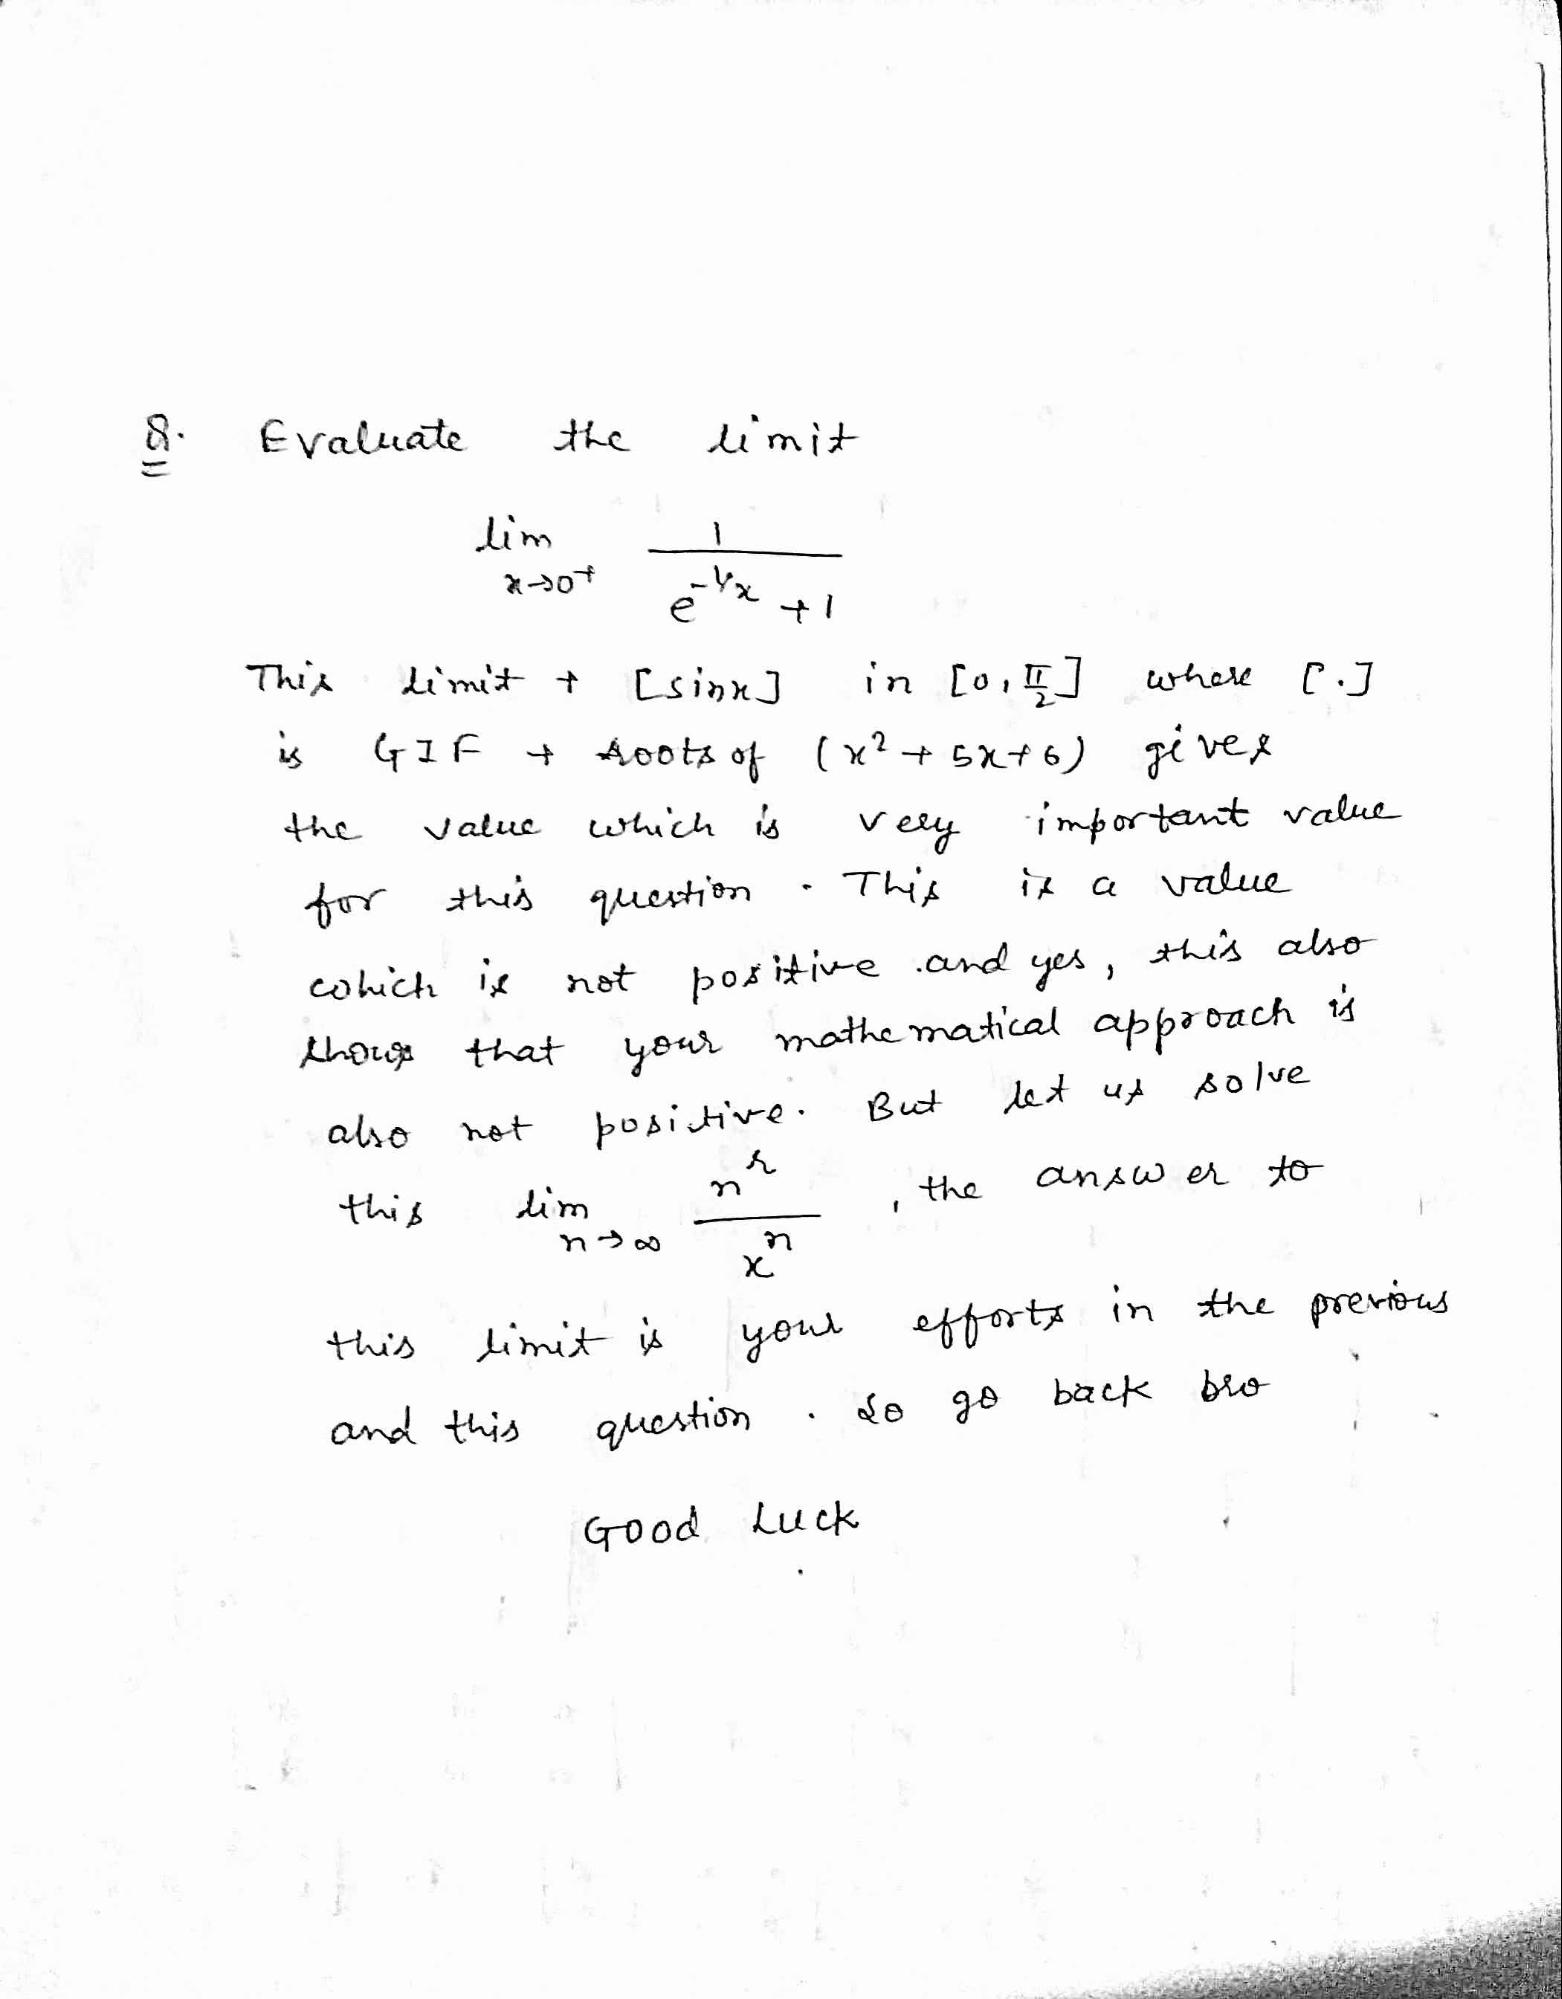 Q. Evaluate the limit
lim x→0+ 1/(e^(-1/x) + 1)
This limit + [sinx] in [0, π/2] where [.]
is GIF + roots of (x² + 5x + 6) gives
the value which is very important value
for this question. This is a value
which is not positive and yes, this also
shows that your mathematical approach is
also not positive. But let us solve
this lim n→∞ n^r/x^n, the answer to
this limit is your efforts in the previous
and this question. So go back bro
Good Luck